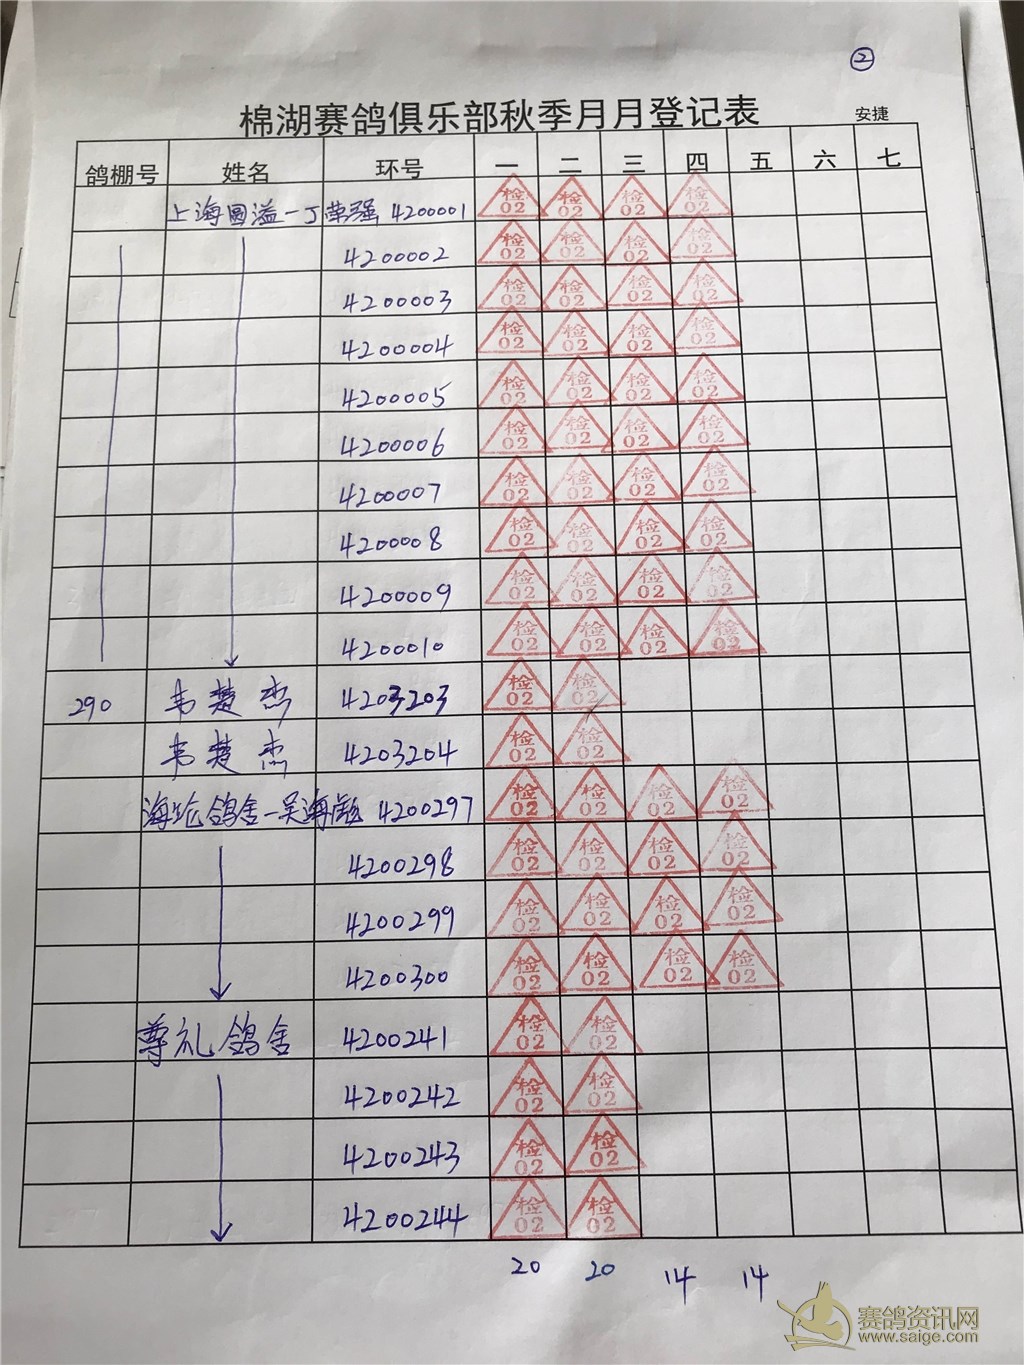 ②
棉湖赛鸽俱乐部秋季月月登记表 安捷
鸽棚号 姓名 环号 一 二 三 四 五 六 七
上海国溢－丁荣强 4200001 检02 检02 检02 检02
4200002 检02 检02 检02 检02
4200003 检02 检02 检02 检02
4200004 检02 检02 检02 检02
4200005 检02 检02 检02 检02
4200006 检02 检02 检02 检02
4200007 检02 检02 检02 检02
4200008 检02 检02 检02 检02
4200009 检02 检02 检02 检02
4200010 检02 检02 检02 检02
290 韦楚杰 4203203 检02 检02
韦楚杰 4203204 检02 检02
海纶鸽舍－吴海彪 4200297 检02 检02 检02 检02
4200298 检02 检02 检02 检02
4200299 检02 检02 检02 检02
4200300 检02 检02 检02 检02
尊礼鸽舍 4200241 检02 检02
4200242 检02 检02
4200243 检02 检02
4200244 检02 检02
20 20 14 14
赛鸽资讯网
www.saige.com